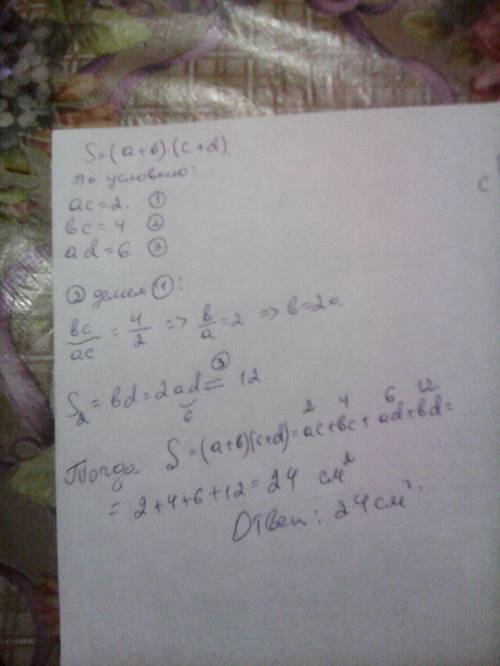 S=(a+в)·(c+d)
По условию:
ac=2. ①
вc=4 ②
ad=6 ③
c
② делим ①:
вc/ac = 4/2 => в/a=2 => в=2a
③
S₂=вd=2ad=12.
6
2 4 6 12
Тогда S=(a+в)(c+d)=ac+вc+ad+вd=
=2+4+6+12=24 см²
Ответ: 24 см².